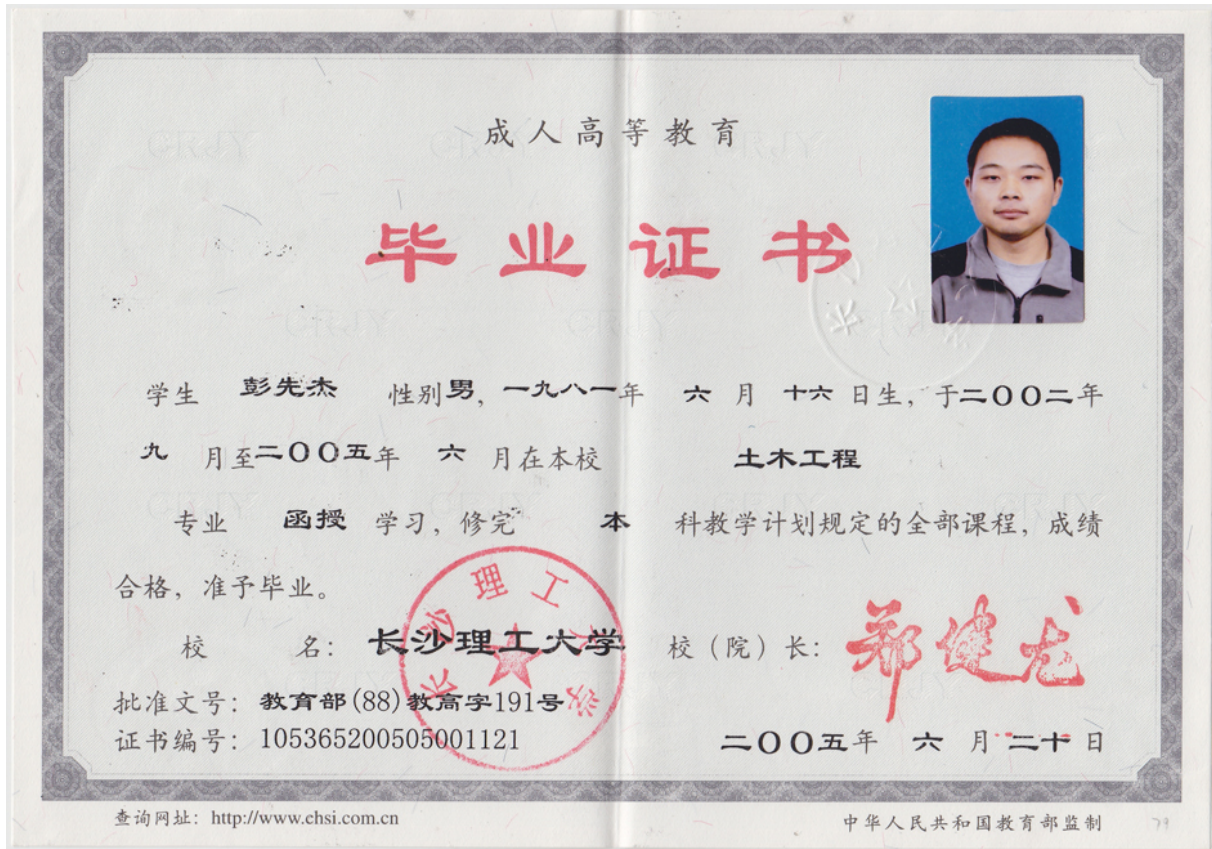 成人高等教育
毕业证书
学生 彭先杰 性别男，一九八一年 六 月 十六 日生，于二〇〇二年
九 月至二〇〇五年 六 月在本校 土木工程
专业 函授 学习，修完 本 科教学计划规定的全部课程，成绩
合格，准予毕业。
校 名： 长沙理工大学 校（院）长： 郑健龙
批准文号： 教育部(88)教高字191号
证书编号： 105365200505001121 二〇〇五年 六 月 二十 日
长沙理工大学
查询网址：http://www.chsi.com.cn 中华人民共和国教育部监制